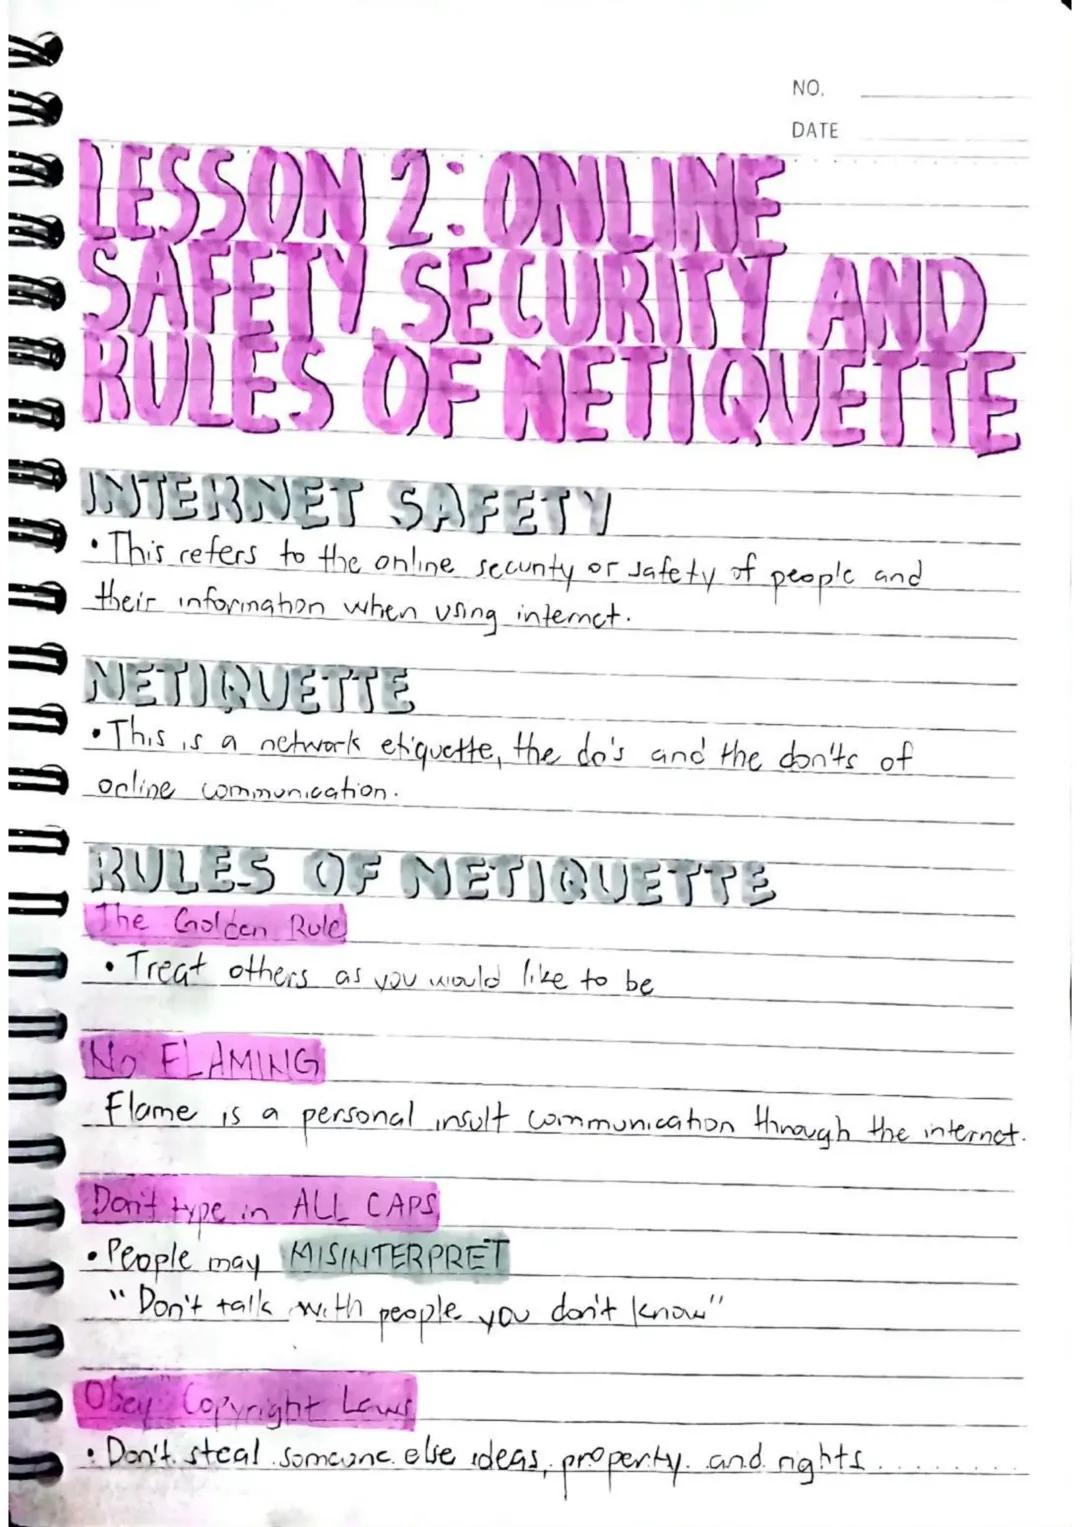 NO.
DATE
LESSON 2: ONLINE
SAFETY, SECURITY AND
RULES OF NETIQUETTE
INTERNET SAFETY
• This refers to the online security or safety of people and
their information when using internet.
NETIQUETTE
• This is a network etiquette, the do's and the don'ts of
online communication.
RULES OF NETIQUETTE
The Golden Rule
• Treat others as you would like to be
No FLAMING
Flame is a personal insult communication through the internet.
Don't type in ALL CAPS
• People may MISINTERPRET
"Don't talk with people you don't know"
Obey Copyright Laws
• Don't steal someone else ideas, property and rights